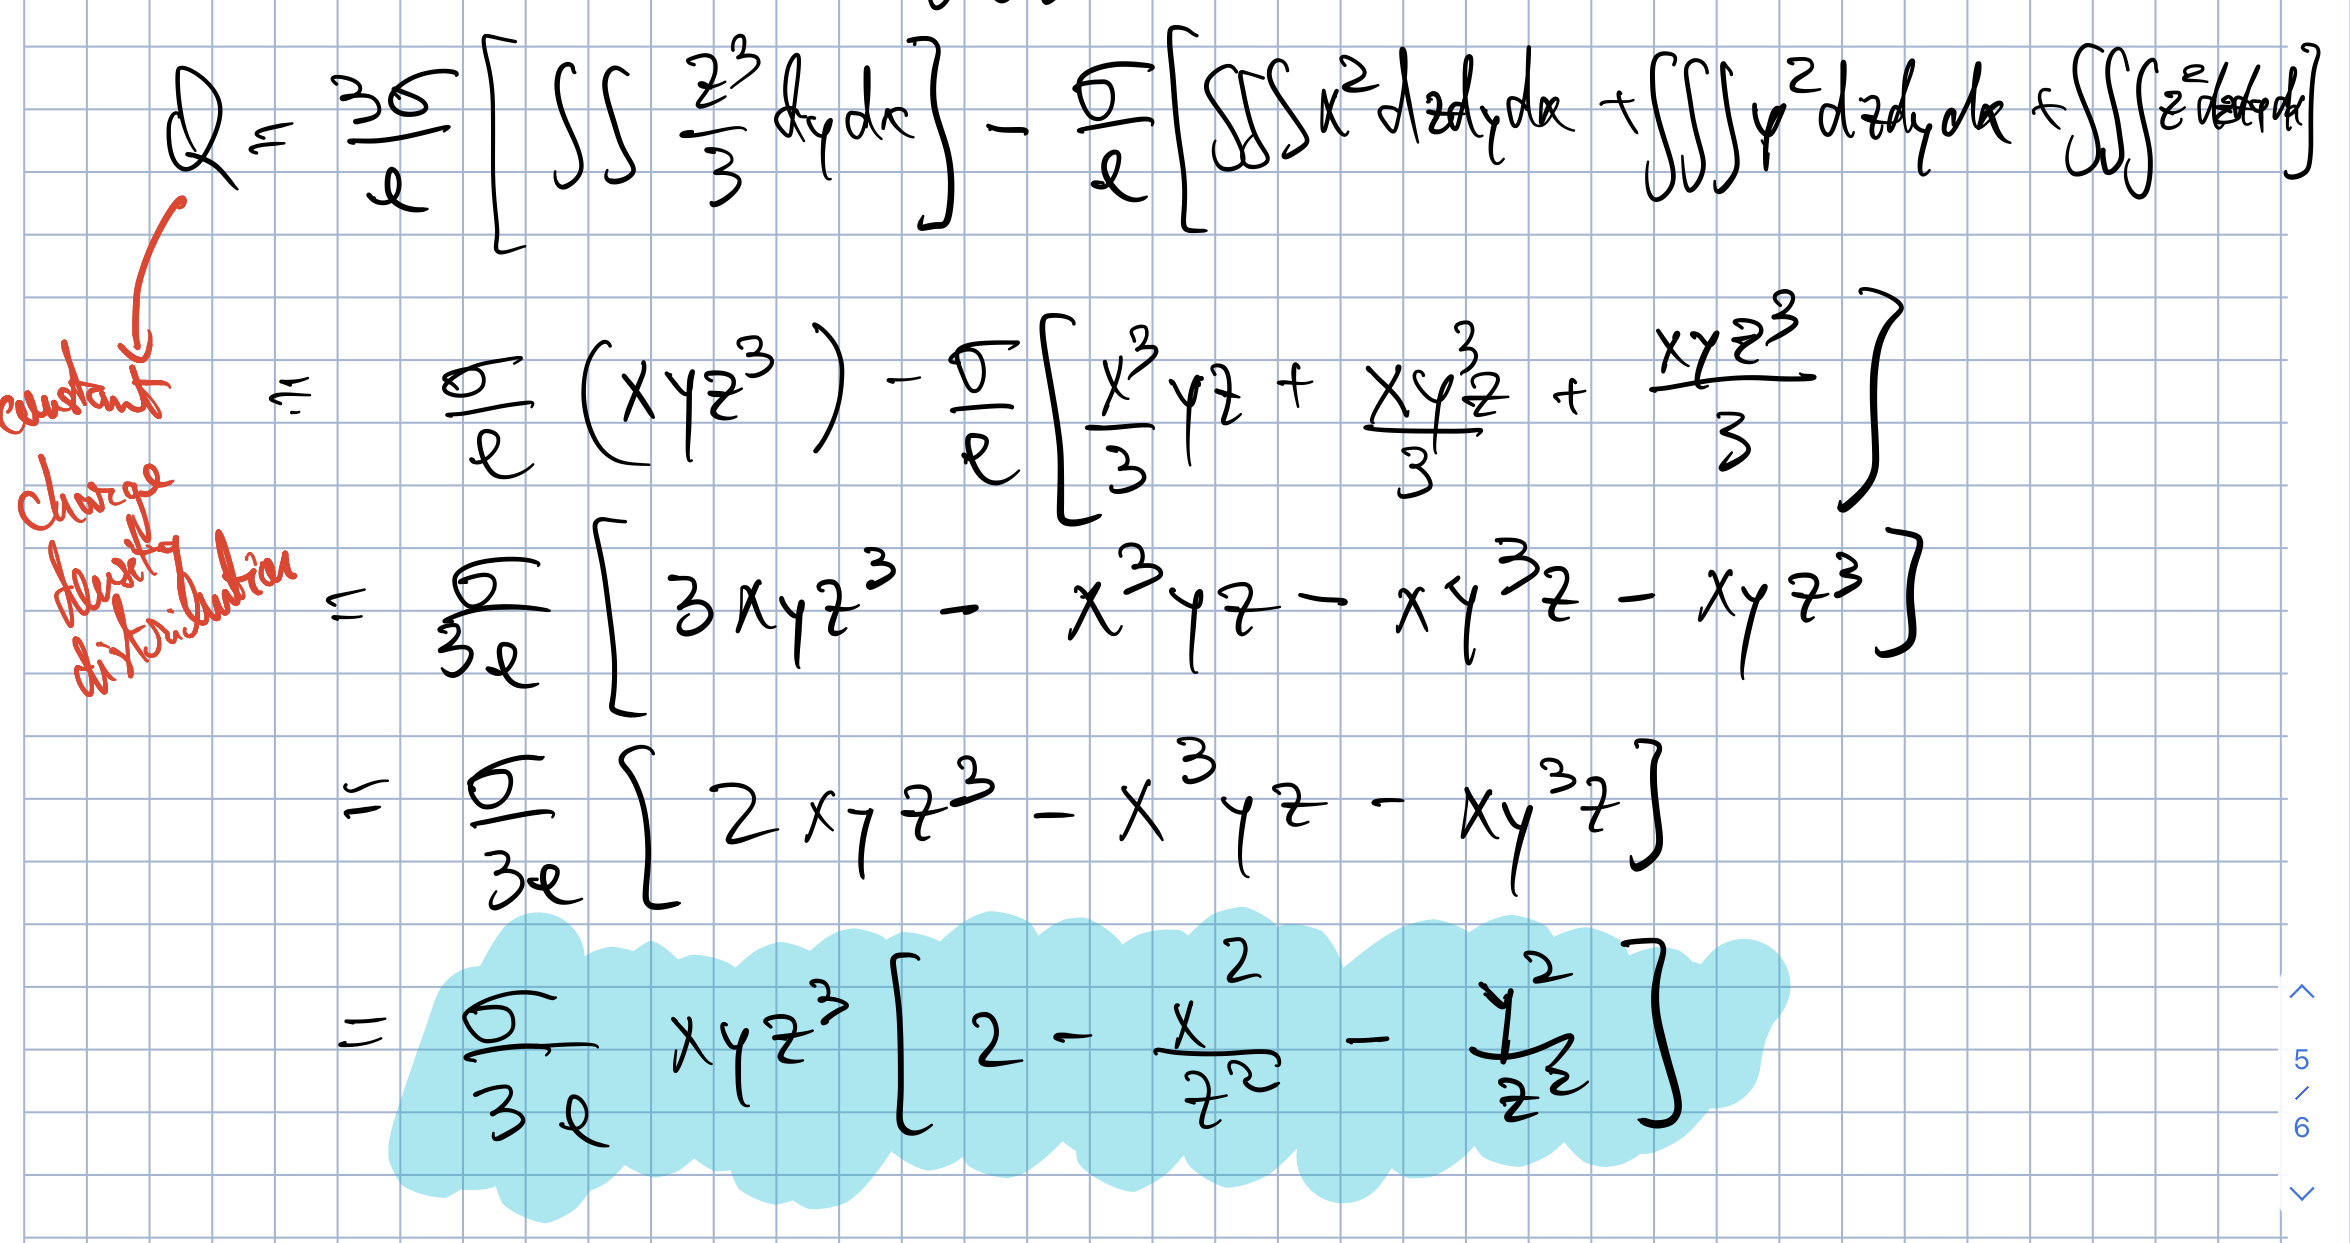 Q = 3σ/e [ ∫∫ z³/3 dy dx ] − σ/e [ ∫∫∫ x² dz dy dx + ∫∫∫ y² dz dy dx + ∫∫∫ z² dz dy dx ]
constant
charge
density
distribution
= σ/e (xyz³) − σ/e [ x³/3 yz + xy³z/3 + xyz³/3 ]
= σ/3e [ 3xyz³ − x³yz − xy³z − xyz³ ]
= σ/3e [ 2xyz³ − x³yz − xy³z ]
= σ/3e xyz³ [ 2 − x²/z² − y²/z² ]
5
/
6